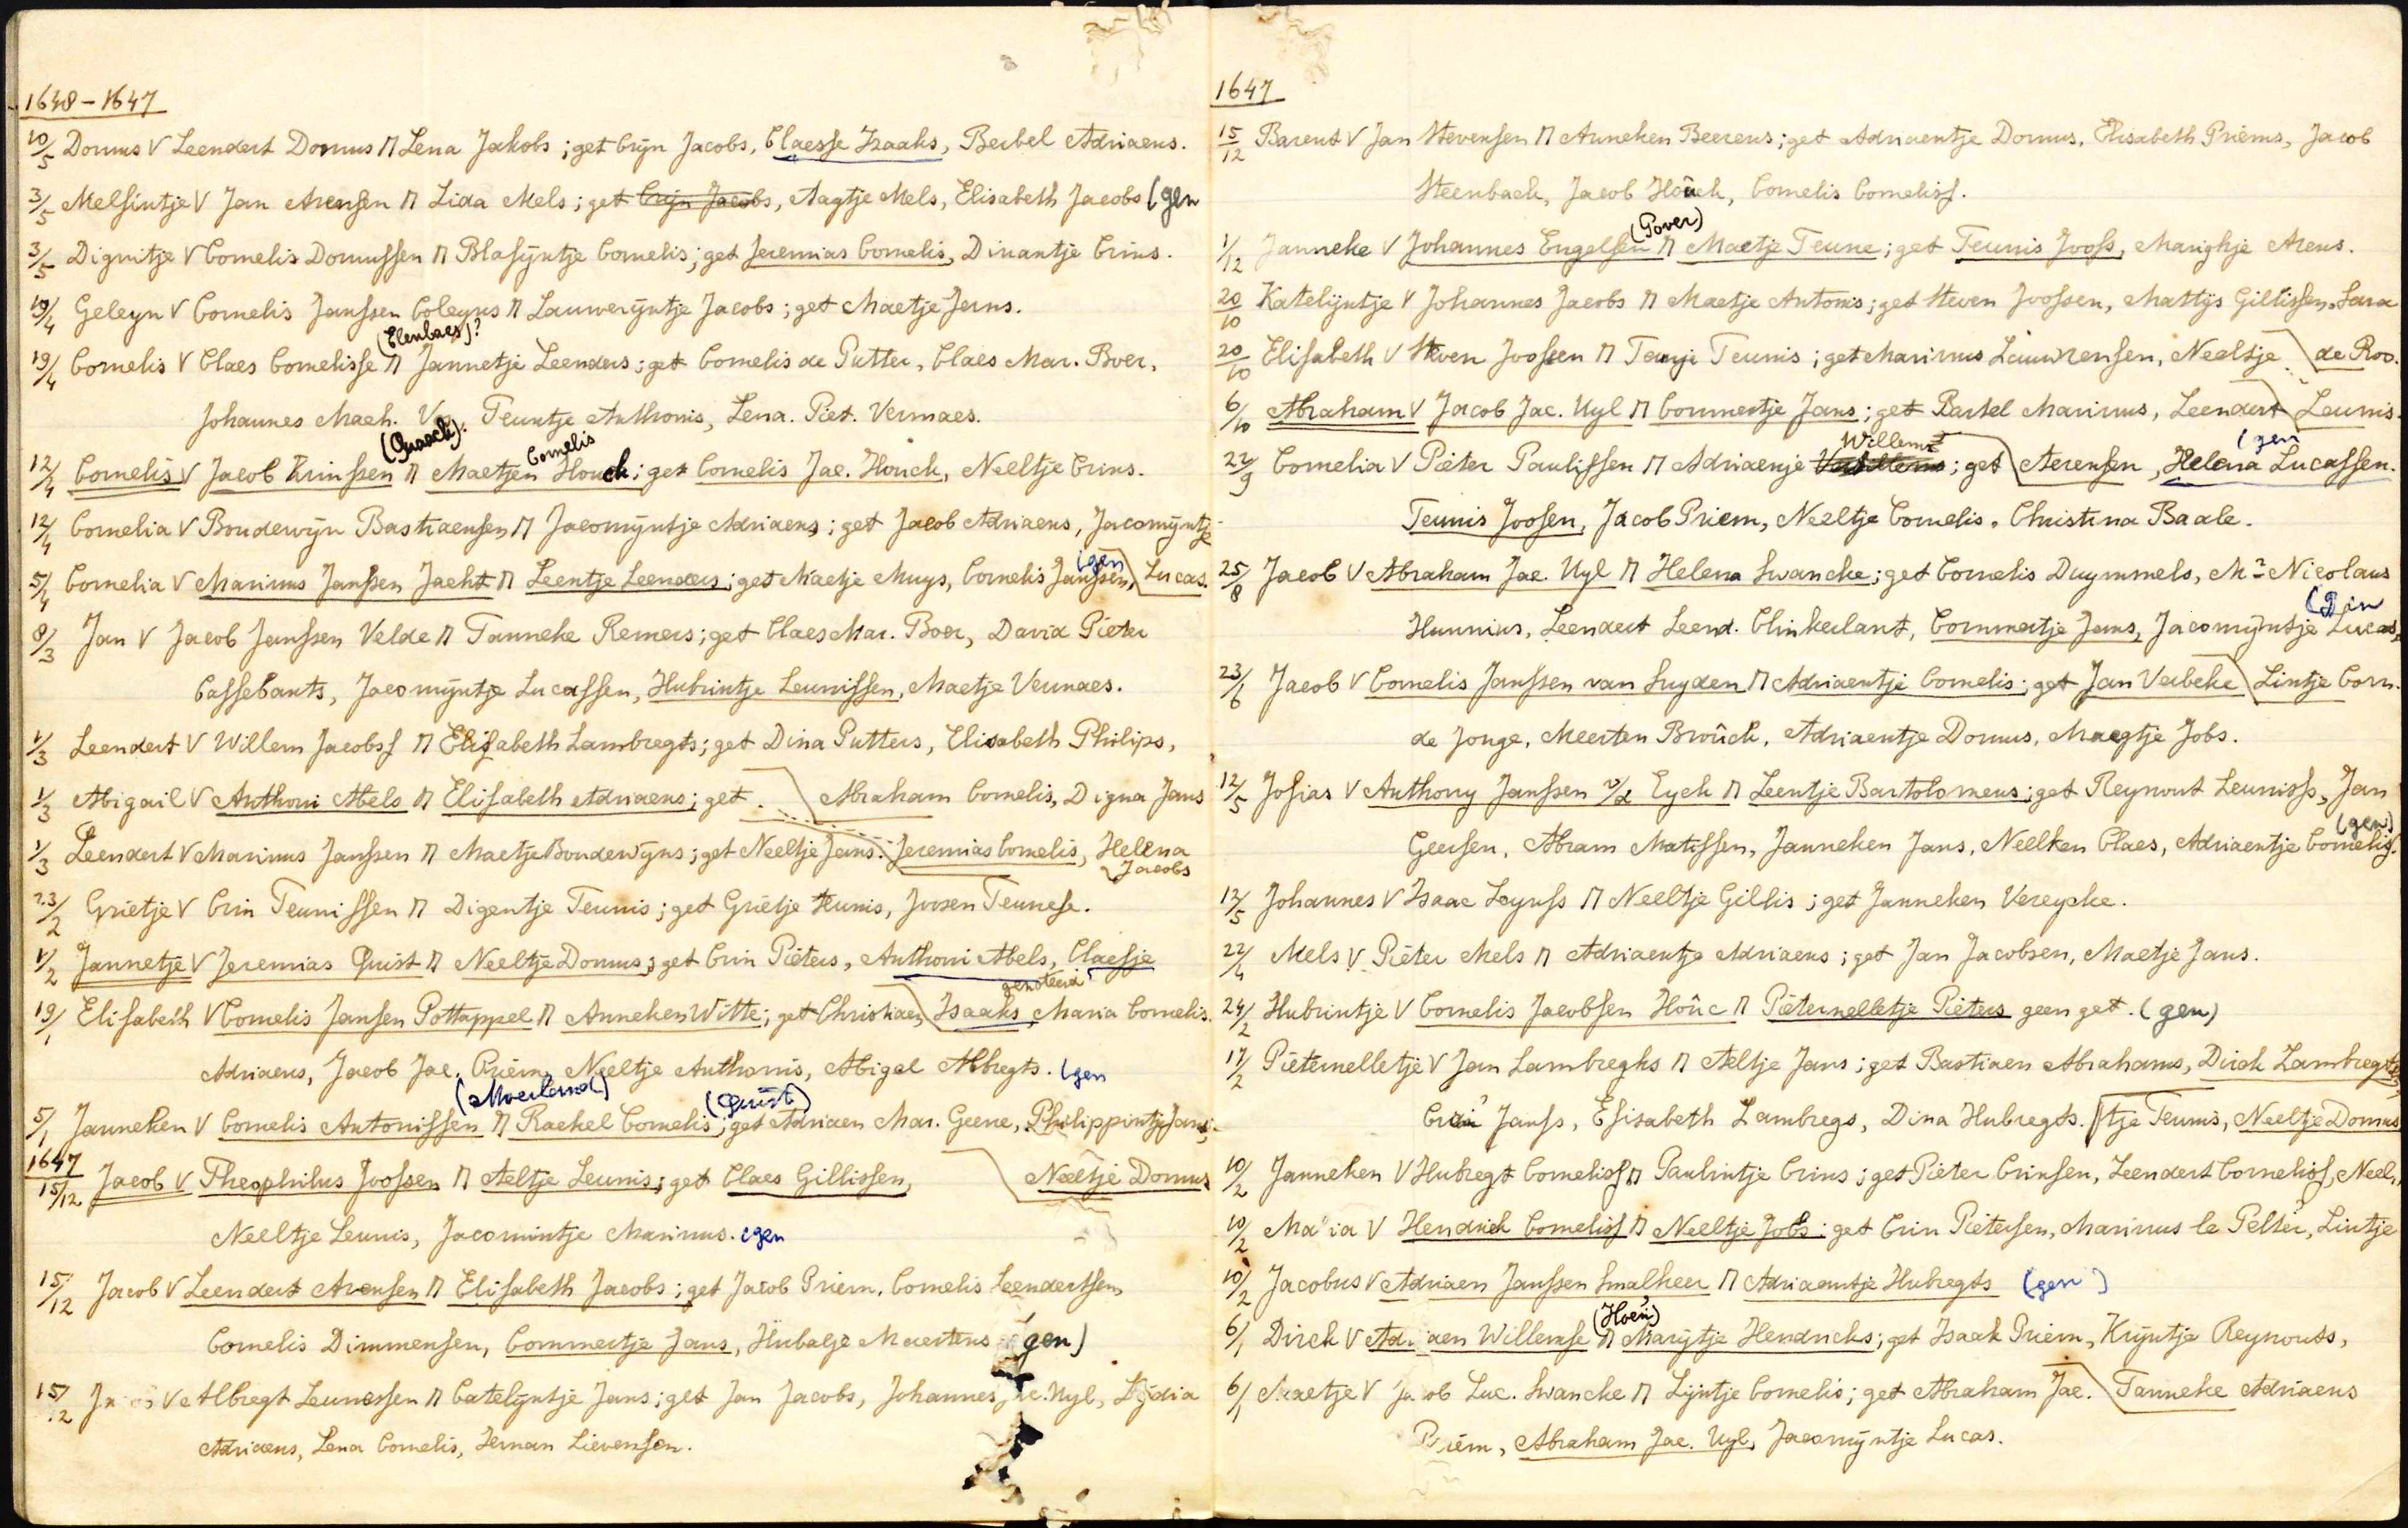 1648-1647
10/5 Domus V Leendert Domus M Lena Jakobs; get Crijn Jacobs, Claesse Izaaks, Berbel Adriaens.
3/5 Melsintje V Jan Arensen M Lida Mels; get Crijn Jacobs, Aagtje Mels, Elisabeth Jacobs (gen
3/5 Dignitje V Cornelis Domussen M Blasijntje Cornelis; get Jeremias Cornelis, Dinantje Crins.
19/4 Geleyn V Cornelis Janssen Coleyns M Lauwerijntje Jacobs; get Maetje Jerns.
(Elenbaes)?
19/4 Cornelis V Claes Cornelisse M Jannetje Leenders; get Cornelis de Putter, Claes Mar. Boer,
Johannes Mach. Teuntje Anthonis, Lena. Piet. Vermaes.
(Quaack). Cornelis
12/4 Cornelis V Jacob Krinssen M Maetjen Houck; get Cornelis Jac. Houck, Neeltje Crins.
12/4 Cornelia V Boudewijn Bastiaensen M Jacomijntje Adriaens; get Jacob Adriaens, Jacomijntje
(gen
5/4 Cornelia V Marinus Janssen Jacht M Leentje Leenders; get Maetje Muys, Cornelis Janssen, Lucas.
8/3 Jan V Jacob Janssen Velde M Tanneke Remers; get Claes Mar. Boer, David Pieter
Cassebants, Jacomijntje Lucassen, Hubrintje Leunissen, Maetje Vermaes.
1/3 Leendert V Willem Jacobss M Elisabeth Lambregts; get Dina Putters, Elisabeth Philips,
1/3 Abigail V Anthoni Abels M Elisabeth Adriaens; get. Abraham Cornelis, Digna Jans
1/3 Leendert V Marinus Janssen M Maetje Boudewijns; get Neeltje Jans. Jeremias Cornelis, Helena
Jacobs
23/2 Grietje V Crin Teunissen M Digentje Teunis; get Grietje Teunis, Joosen Teunese.
1/2 Jannetje V Jeremias Quist M Neeltje Domus; get Crin Pieters, Anthoni Abels, Claesje
genoteerd
19/1 Elisabeth V Cornelis Jansen Pottappel M Anneken Witte; get Christiaen Isaaks Maria Cornelis.
Adriaens, Jacob Jac. Priem, Neeltje Anthonis, Abigel Albregts. (gen
(Moerland) (Quist)
5/1 Janneken V Cornelis Antonissen M Rachel Cornelis; get Adriaen Mar. Geene, Philippintje Jans.
1647
15/12 Jacob V Theophilus Joossen M Aeltje Leunis; get Claes Gillissen, Neeltje Domus
Neeltje Leunis, Jacomintje Marinus. (gen
15/12 Jacob V Leendert Arensen M Elisabeth Jacobs; get Jacob Priem, Cornelis Leendertsen
Cornelis Dimmensen, Commertje Jans, Hubatje Maertens gen)
15/12 V Albregt Leunessen M Catelijntje Jans; get Jan Jacobs, Johannes Jac. Uyl, Lydia
Adriaens, Lena Cornelis, Jeman Lievensen.
1647
15/12 Barent V Jan Stevensen M Anneken Beerens; get Adriaentje Domus, Elisabeth Priems, Jacob
Steenback, Jacob Houck, Cornelis Corneliss.
(Pover)
1/12 Janneke V Johannes Engelsen M Maetje Teune; get Teunis Jooss, Marighje Arens.
20/10 Katelijntje V Johannes Jacobs M Maetje Antonis; get Steven Joossen, Mattijs Gillissen, Sara
20/10 Elisabeth V Steven Joossen M Tanje Teunis; get Marinus Lauwrensen, Neeltje de Roo.
6/10 Abraham V Jacob Jac. Uyl M Commertje Jans; get Bartel Marinus, Leendert Leunis.
Willems (gen
22/9 Cornelia V Pieter Paulissen M Adriaenje; get Aerensen, Helena Lucassen.
Teunis Joosen, Jacob Priem, Neeltje Cornelis. Christina Baale.
25/8 Jacob V Abraham Jac. Uyl M Helena Swancke; get Cornelis Duymmels, Mr Nicolaus
(gen
Hunnius, Leendert Leend. Clinkerlant, Commertje Jans, Jacomijntje Lucas,
23/6 Jacob V Cornelis Janssen van Suyden M Adriaentje Cornelis; get Jan Verbeke Lintje Corn.
de Jonge, Meerten Brouck, Adriaentje Domus, Maegtje Jobs.
12/5 Josias V Anthony Janssen v/d Eyck M Leentje Bartolomeus; get Reynout Leuniss, Jan
(gen)
Geersen, Abram Matissen, Janneken Jans, Neelken Claes, Adriaentje Cornelis.
12/5 Johannes V Isaac Leynss M Neeltje Gillis; get Janneken Vereycke.
22/4 Mels V Pieter Mels M Adriaentje Adriaens; get Jan Jacobsen, Maetje Jans.
24/2 Hubrintje V Cornelis Jacobsen Houc M Pieternelletje Pieters geen get. (gen)
17/2 Pieternelletje V Jan Lambregks M Aeltje Jans; get Bastiaen Abrahams, Dirck Lambregts,
Crin Janss, Elisabeth Lambregs, Dina Hubregts. tje Teunis, Neeltje Domus
10/2 Janneken V Hubregt Corneliss M Paulintje Crins; get Pieter Crinsen, Leendert Corneliss, Neel,,
10/2 Maria V Hendrick Corneliss M Neeltje Jobs; get Crin Pietersen, Marinus le Pelter, Lintje
10/2 Jacobus V Adriaen Janssen Smalheer M Adriaentje Hubregts (gen)
(Hoen)
6/1 Dirck V Adriaen Willemse M Marijtje Hendricks; get Isaak Priem, Krijntje Reynouts,
6/1 Maetje V Jacob Luc. Swancke M Lijntje Cornelis; get Abraham Jac. Tanneke Adriaens
Priem, Abraham Jac. Uyl, Jacomijntje Lucas.